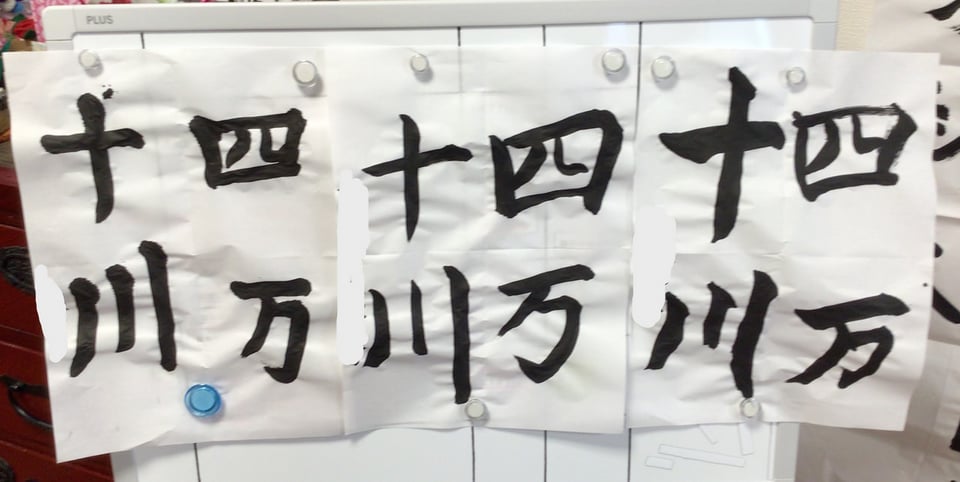 PLUS
四万
十川
四万
十川
四万
十川